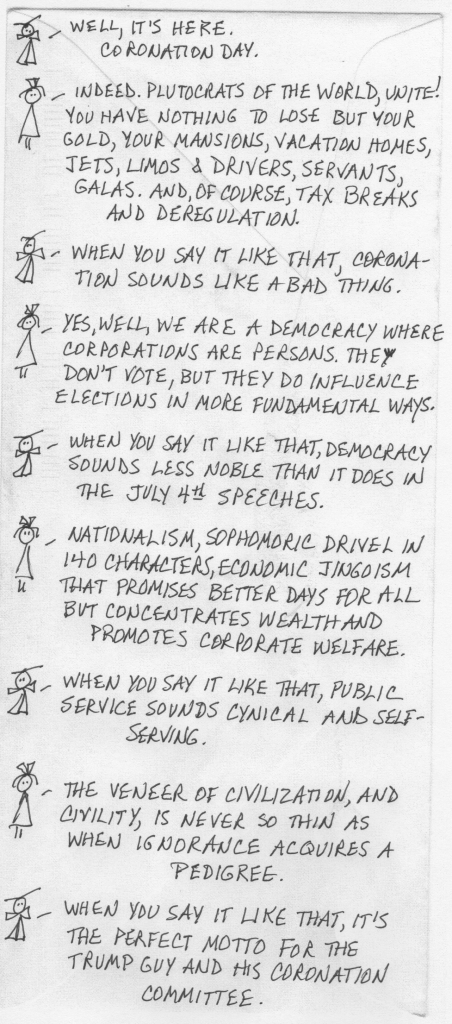 WELL, IT'S HERE.
CORONATION DAY.
INDEED. PLUTOCRATS OF THE WORLD, UNITE!
YOU HAVE NOTHING TO LOSE BUT YOUR
GOLD, YOUR MANSIONS, VACATION HOMES,
JETS, LIMOS & DRIVERS, SERVANTS,
GALAS. AND, OF COURSE, TAX BREAKS
AND DEREGULATION.
WHEN YOU SAY IT LIKE THAT, CORONA-
TION SOUNDS LIKE A BAD THING.
YES, WELL, WE ARE A DEMOCRACY WHERE
CORPORATIONS ARE PERSONS. THEY
DON'T VOTE, BUT THEY DO INFLUENCE
ELECTIONS IN MORE FUNDAMENTAL WAYS.
WHEN YOU SAY IT LIKE THAT, DEMOCRACY
SOUNDS LESS NOBLE THAN IT DOES IN
THE JULY 4th SPEECHES.
NATIONALISM, SOPHOMORIC DRIVEL IN
140 CHARACTERS, ECONOMIC JINGOISM
THAT PROMISES BETTER DAYS FOR ALL
BUT CONCENTRATES WEALTH AND
PROMOTES CORPORATE WELFARE.
WHEN YOU SAY IT LIKE THAT, PUBLIC
SERVICE SOUNDS CYNICAL AND SELF-
SERVING.
THE VENEER OF CIVILIZATION, AND
CIVILITY, IS NEVER SO THIN AS
WHEN IGNORANCE ACQUIRES A
PEDIGREE.
WHEN YOU SAY IT LIKE THAT, IT'S
THE PERFECT MOTTO FOR THE
TRUMP GUY AND HIS CORONATION
COMMITTEE.